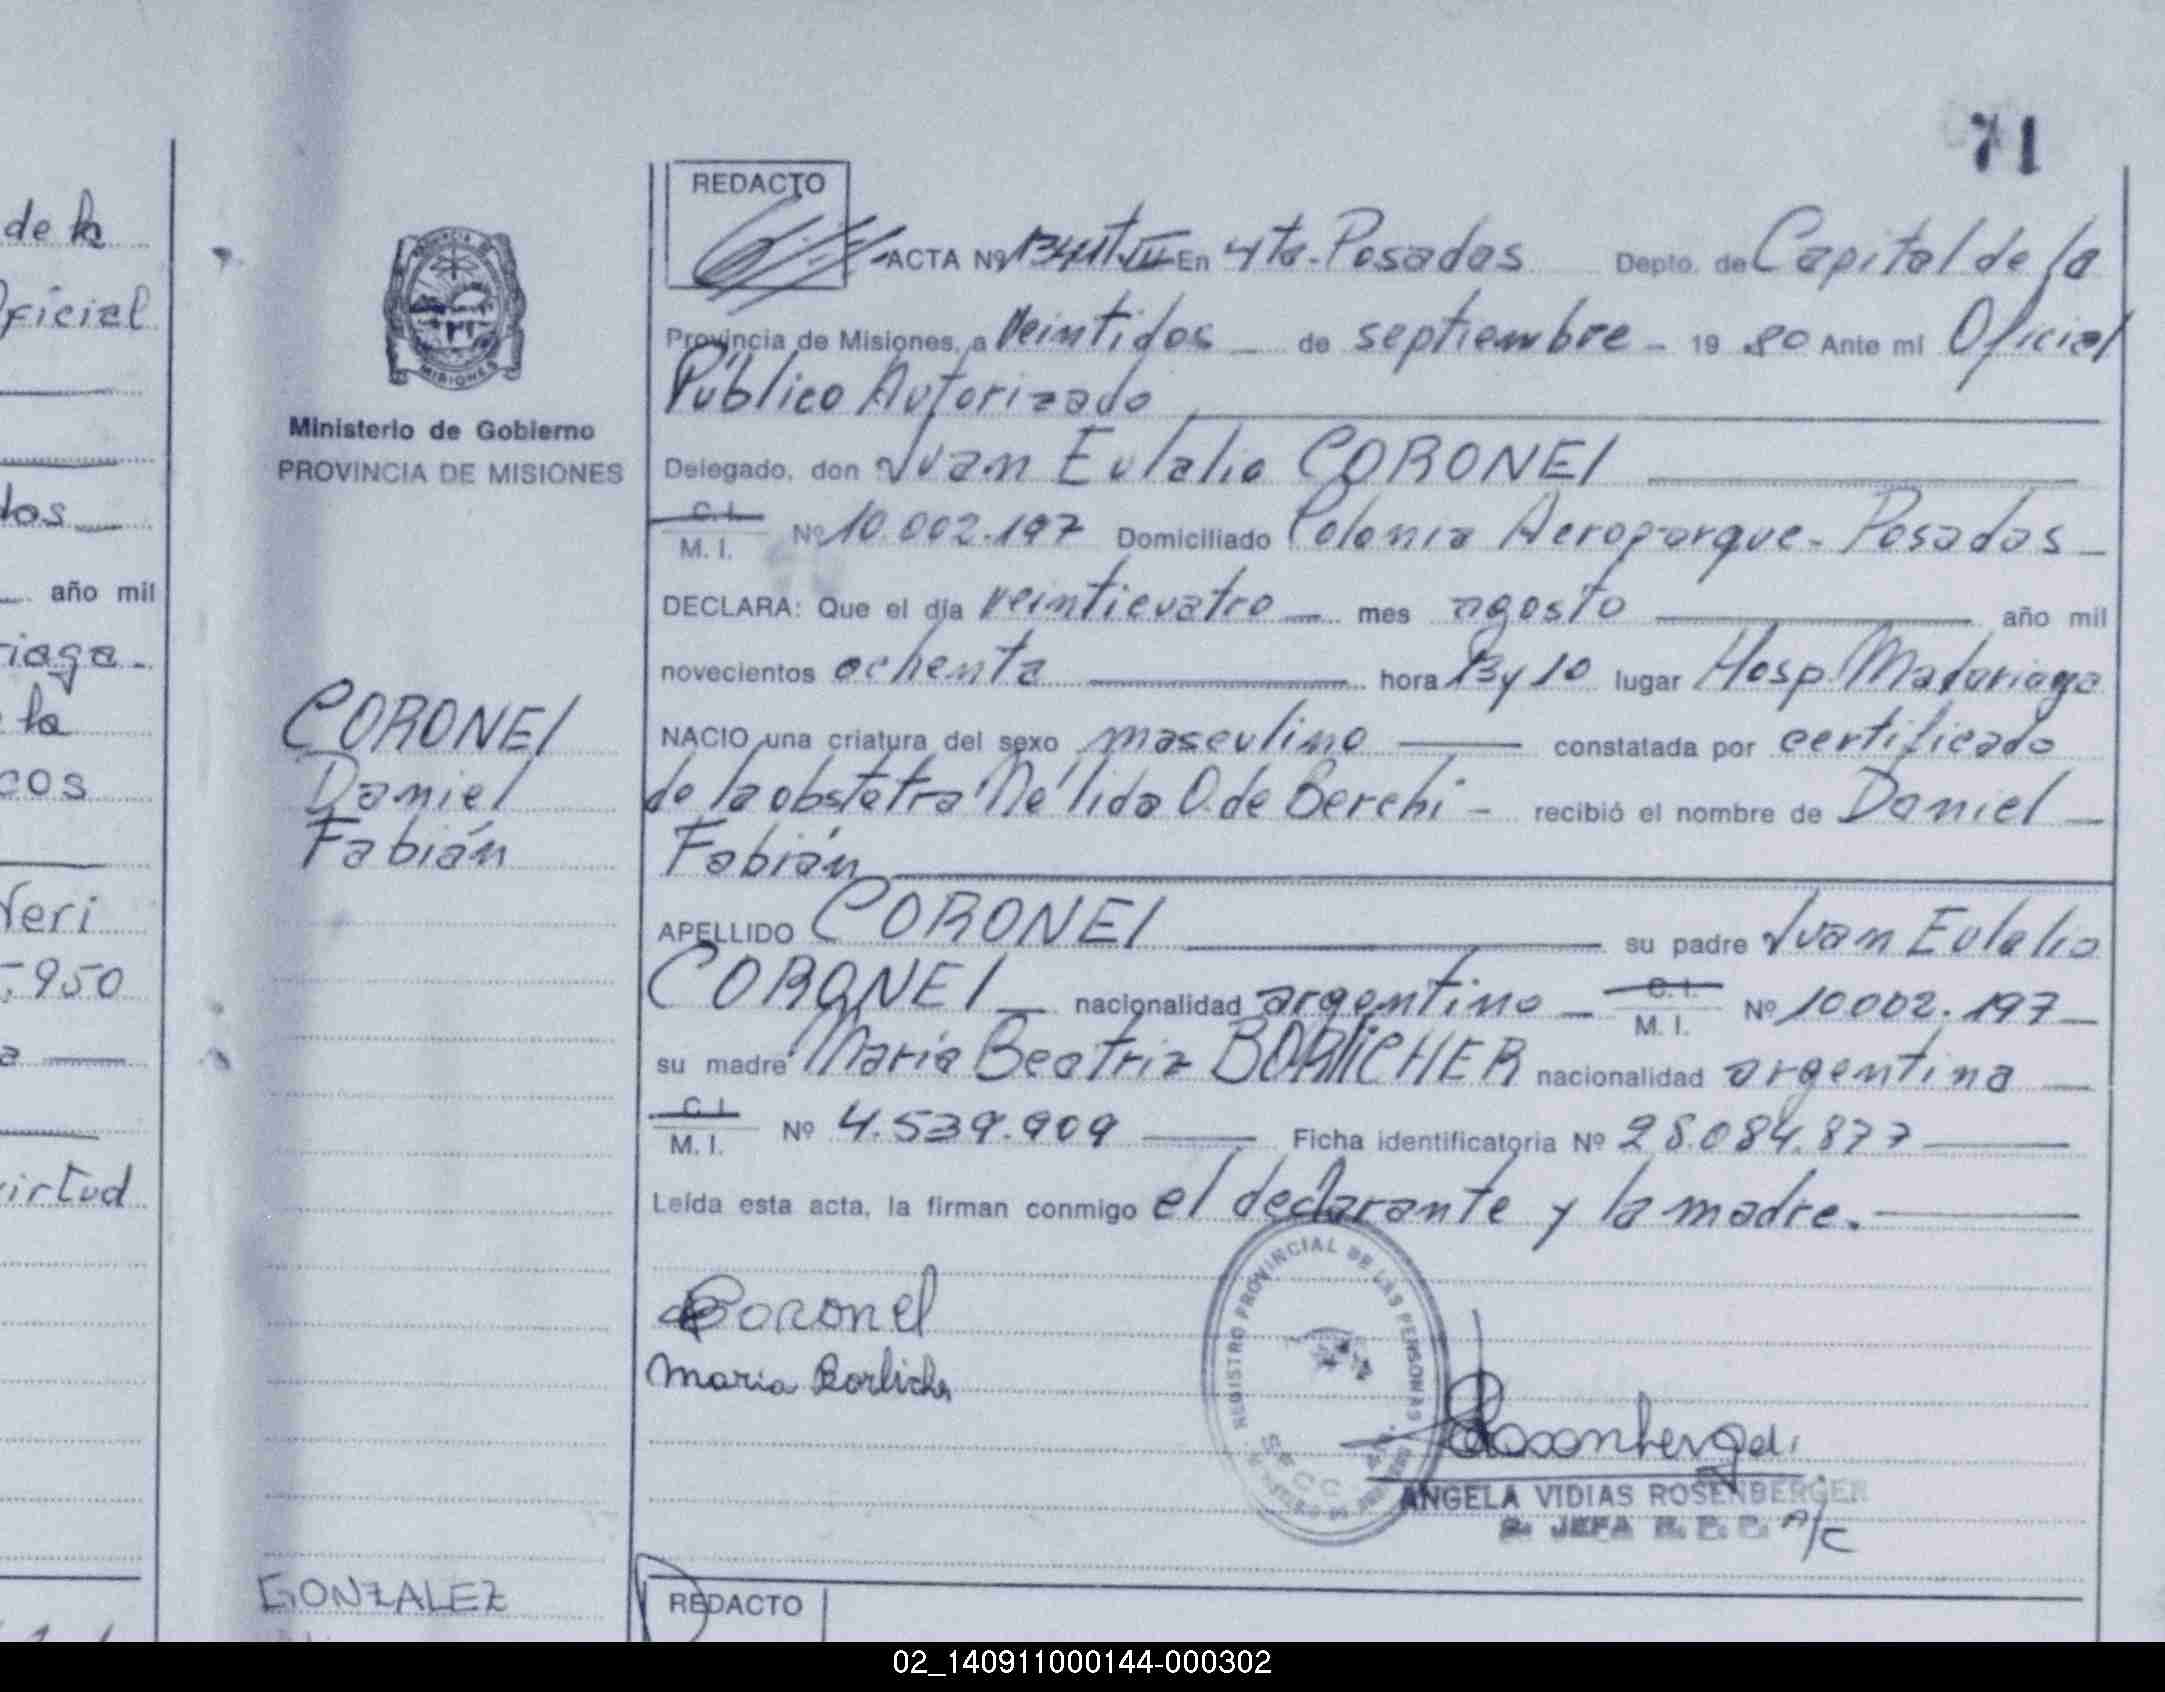 71
de la
Oficial
dos
año mil
riaga.
la
cos
Neri
950
a
virtud
PROVINCIA DE
MISIONES
Ministerio de Gobierno
PROVINCIA DE MISIONES
CORONEL
Daniel
Fabián
GONZALEZ
REDACTO
ACTA Nº En 4ta. Posadas Depto. de Capital de la
Provincia de Misiones, a veintidos de septiembre - 19 80 Ante mi Oficial
Público Autorizado
Delegado, don Juan Eulalio CORONEL
C. I.
M. I. Nº 10.002.197 Domiciliado Colonia Aeroparque - Posadas
DECLARA: Que el día veinticuatro mes agosto año mil
novecientos ochenta hora 13 y 10 lugar Hosp. Madariaga
NACIO una criatura del sexo masculino constatada por certificado
de la obstetra Nélida O. de Berchi - recibió el nombre de Daniel
Fabián
APELLIDO CORONEL su padre Juan Eulalio
CORONEL nacionalidad argentino C. I.
M. I. Nº 10002.197
su madre María Beatriz BORLICHER nacionalidad argentina
C. I.
M. I. Nº 4.539.909 Ficha identificatoria Nº 28.084.877
Leída esta acta, la firman conmigo el declarante y la madre.
Coronel
Maria Borlicher
REGISTRO PROVINCIAL DE LAS PERSONAS
SECC
Rosenberger
ANGELA VIDIAS ROSENBERGER
JEFA A/C
REDACTO
02_140911000144-000302